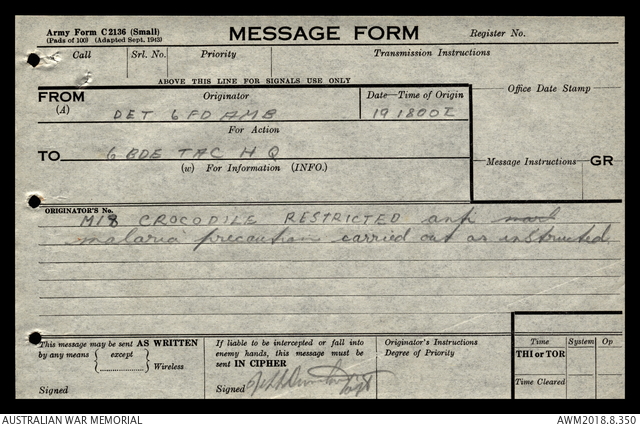 Army Form C2136 (Small)
(Pads of 100) (Adapted Sept. 1943)
MESSAGE FORM
Register No.
Call Srl. No. Priority Transmission Instructions
ABOVE THIS LINE FOR SIGNALS USE ONLY
FROM Originator Date—Time of Origin Office Date Stamp
(A) DET 6 FD AMB 19 1800I
For Action
TO 6 BDE TAC H Q
(w) For Information (INFO.) Message Instructions GR
ORIGINATOR'S No.
M18 CROCODILE RESTRICTED anti
malaria precaution carried out as instructed
This message may be sent AS WRITTEN
by any means { except }
Wireless
Signed
If liable to be intercepted or fall into
enemy hands, this message must be
sent IN CIPHER
Signed Capt
Originator's Instructions
Degree of Priority
Time System Op
THI or TOR
Time Cleared
AUSTRALIAN WAR MEMORIAL AWM2018.8.350